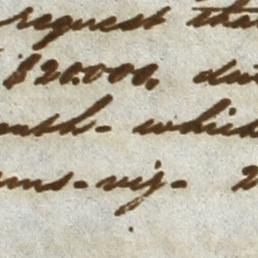 request that
$20.000, dat
onth - which
ms - viz - 2